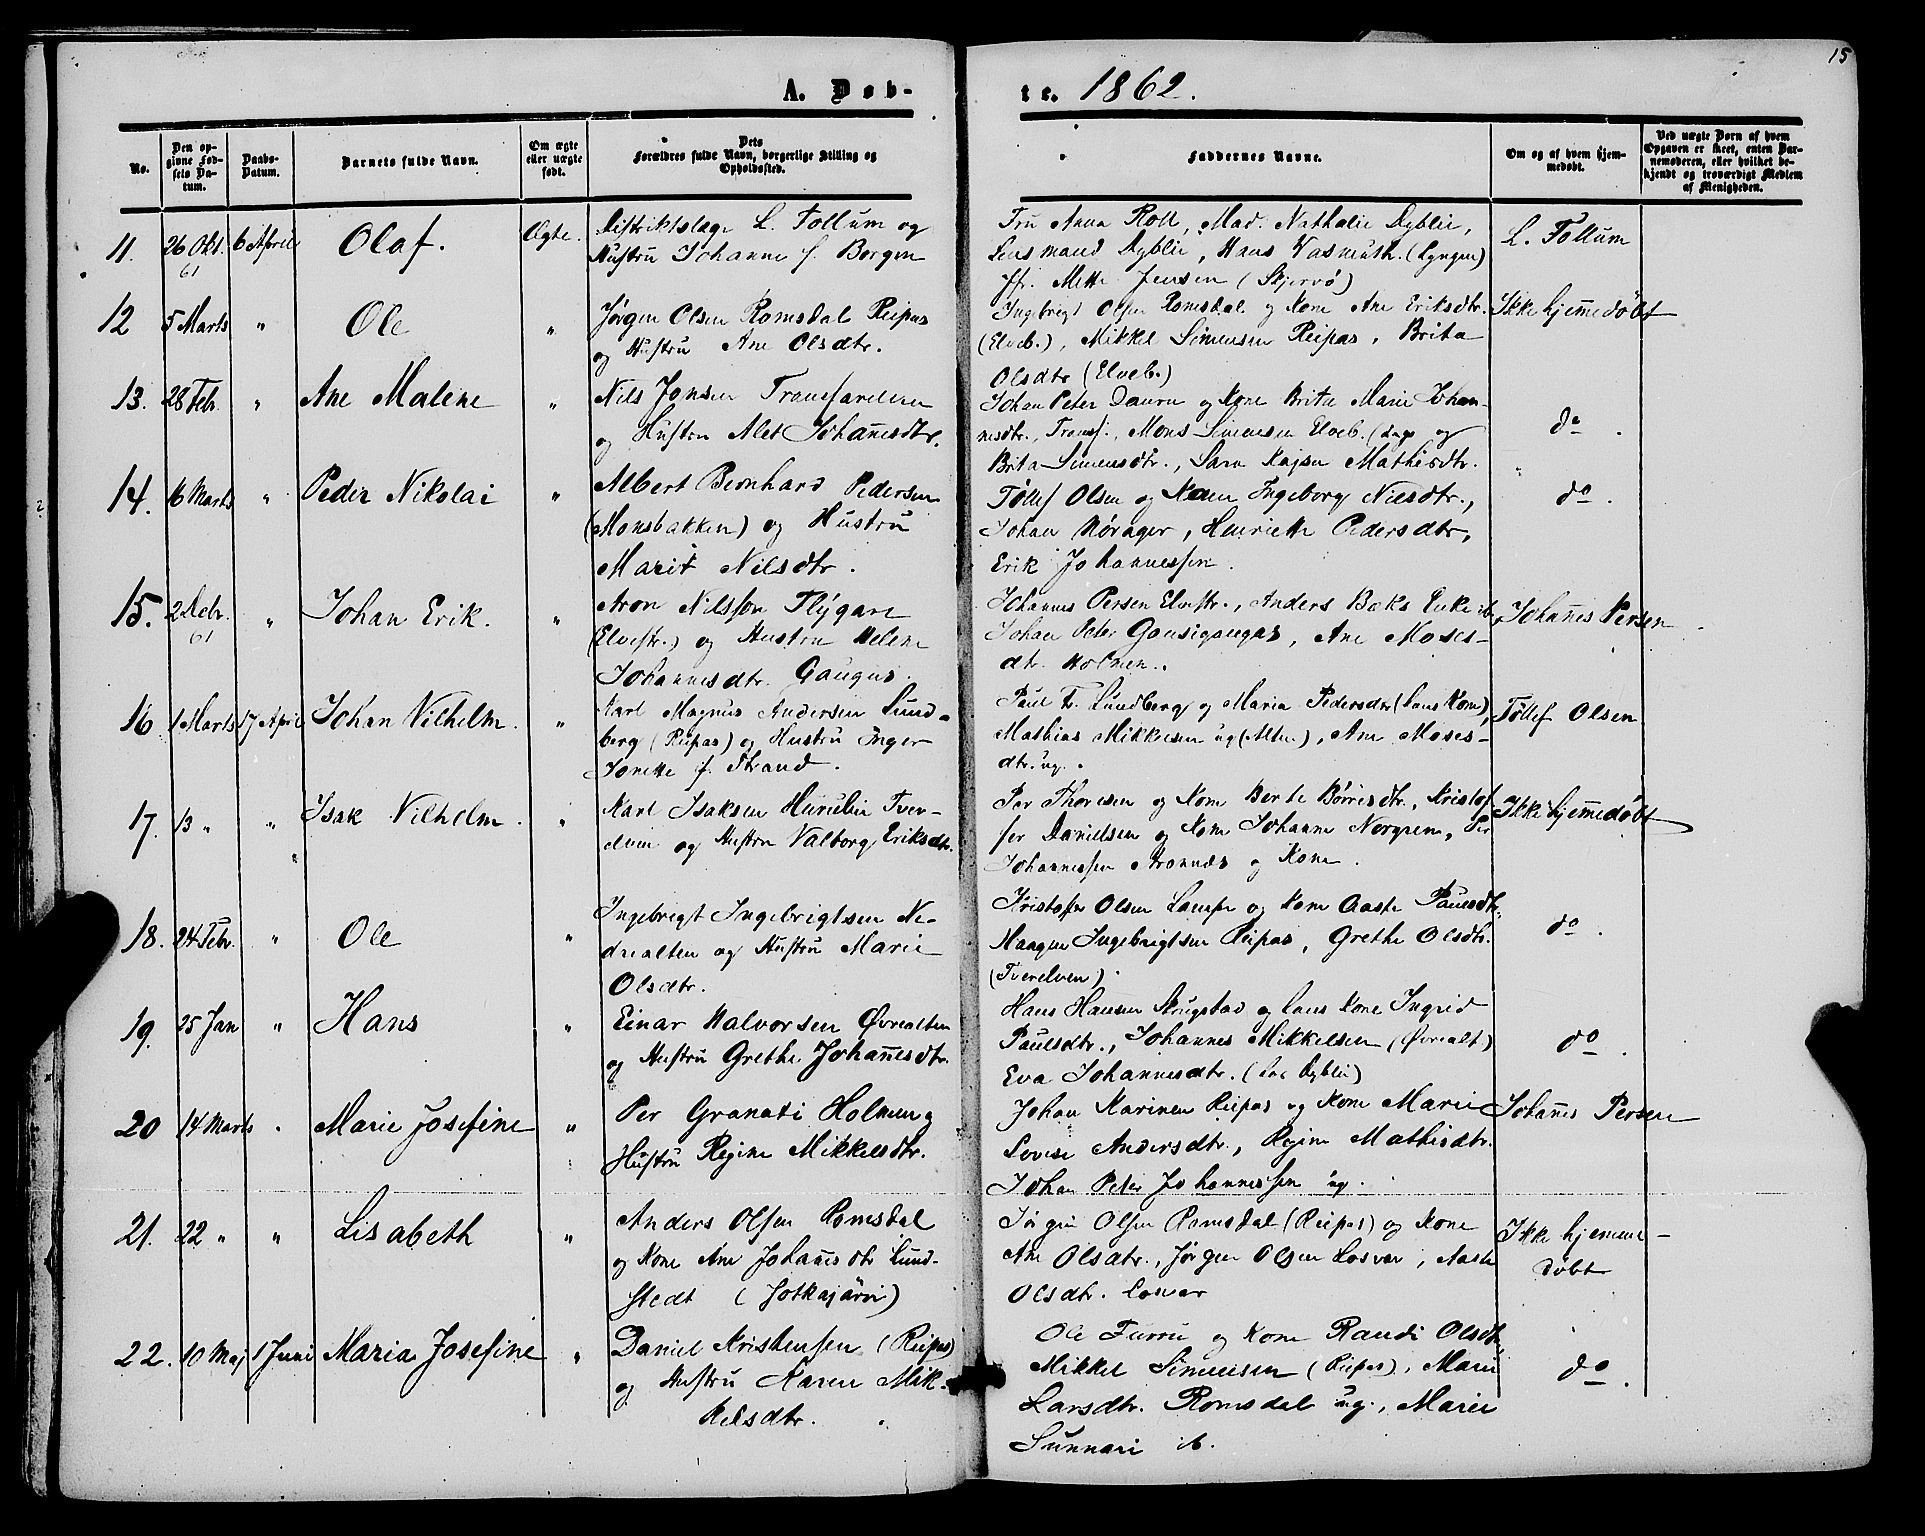 15
A. Døb-
te. 1862.
No.
Den op-
givne Fød-
sels Da-
tum.
Daabs-
Datum.
Barnets fulde Navn.
Om ægte
eller uægte
født.
Dets
Forældres fulde Navn, borgerlige Stilling og
Opholdssted.
Faddernes Navne.
Om og af hvem hjem-
medøbt.
Ved uægte Børn af hvem
Opgaven er skeet, enten Bar-
nemoderen, eller hvilket be-
kjendt og troværdigt Medlem
af Menigheden.
11. 26 Okt. 6 April Olaf. Ægte.
61
Distriktslæge L. Follum og
Hustru Johanne f. Borgen
Fru Anna Roll, Mad. Nathalie Dyblie,
Lensmand Dyblie, Hans Wasmuth. (Lyngen)
Mette Jensen (Skjervø)
L. Follum
12 5 Marts " Ole "
Jørgen Olsen Romsdal Reipas
og Hustru Ane Olsdtr.
Ingebrigt Olsen Romsdal og Kone Ane Eriksdtr.
(Elveb.), Mikkel Simensen Reipas, Brita
Olsdtr (Elveb.)
Ikke hjemmedöbt
13. 28 Febr. " Ane Malene "
Nils Jonsen Transfarelven
og Hustru Alet Johannesdtr.
Johan Peter Daura og Kone Brita Marie Johan-
nesdtr. Transf., Mons Simensen Elveb. og
Brita Simensdtr., Sara Kajsa Mathisdtr.
do.
14. 16 Marts " Peder Nikolai "
Albert Bernhard Pedersen
(Monsbakken) og Hustru
Marit Nilsdtr.
Töllef Olsen og Kone Ingeborg Nilsdtr.,
Johan Nörager, Henriette Pedersdtr,
Erik Johannessen.
do.
15. 2 Debr. " Johan Erik. "
61
Aron Nilsson Flygare
(Elvestr.) og Hustru Helene
Johannesdtr. Gaugus.
Johannes Persen Elvestr., Anders Boks Enke ib,
Johan Peter Gausigaugas, Ane Moses-
dtr. Holmen.
Johannes Persen
16. 1 Marts 17 April Johan Vilhelm. "
Karl Magnus Andersen Lund-
berg (Reipas) og Hustru Inger
Jonette f. Strand.
Paul E. Lundberg og Maria Pedersdtr (hans Kone),
Mathias Mikkelsen ug (Alten), Ane Moses-
dtr. ug.
Töllef Olsen
17. 13 " " Isak Vilhelm. "
Karl Isaksen Hurulin Tver-
elven og Hustru Valborg Eriksdtr.
Per Thoresen og Kone Berte Börresdtr., Kristof-
fer Danielsen og Kone Johanne Norgren, Per
Johannessen Aronnes og Kone.
Ikke hjemmedöbt
18. 24 Febr. " Ole "
Ingebrigt Ingebrigtsen Ne-
drealten og Hustru Marie
Olsdtr.
Kristofer Olsen Lampe og Kone Aaste Paulsdtr,
Haagen Ingebrigtsen Reipas, Grethe Olsdtr.
(Tverelven).
do.
19. 25 Jan " Hans "
Einar Halvorsen Øvrealten
og Hustru Grethe Johannesdtr.
Hans Hansen Skrugstad og hans Kone Ingrid
Paulsdtr., Johannes Mikkelsen (Øvrealt)
Eva Johannesdtr. (hos Dyblie)
do.
20 14 Marts " Marie Josefine "
Per Granati Holmen og
Hustru Regine Mikkelsdtr.
Johan Karinen Reipas og Kone Marie
Lovise Andersdtr., Regine Mathisdtr.
Johan Peter Johannessen ug.
Johannes Persen
21. 22 " " Lisabeth "
Anders Olsen Romsdal
og Kone Ane Johannesdtr Lund-
stedt (Jotkajärvi)
Jörgen Olsen Romsdal (Reipas) og Kone
Ane Olsdtr., Jörgen Olsen Losvar, Aaste
Olsdtr. Losvar
Ikke hjemme-
döbt
22. 10 Maj 1 Juni Maria Josefine "
Daniel Kristensen (Reipas)
og Hustru Karen Mik-
kelsdtr.
Ole Furru og Kone Randi Olsdtr,
Mikkel Simensen (Reipas), Marie
Larsdtr. Romsdal ug., Marie
Sunnari ib.
do.